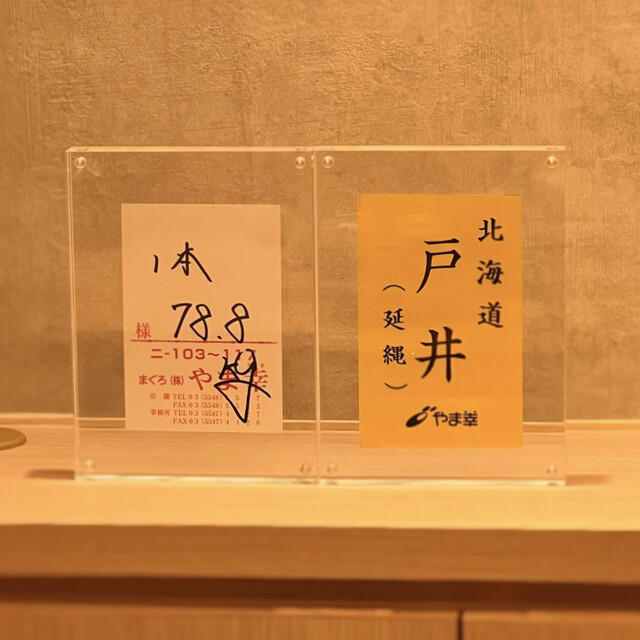 1本
様 78.8
ニ-103~
まぐろ(株) やま幸
店舗 TEL 03 (5548)
FAX 03 (5548)
事務所 TEL 03 (5547)
FAX 03 (5547) 4126
北海道
戸井
(延縄)
やま幸